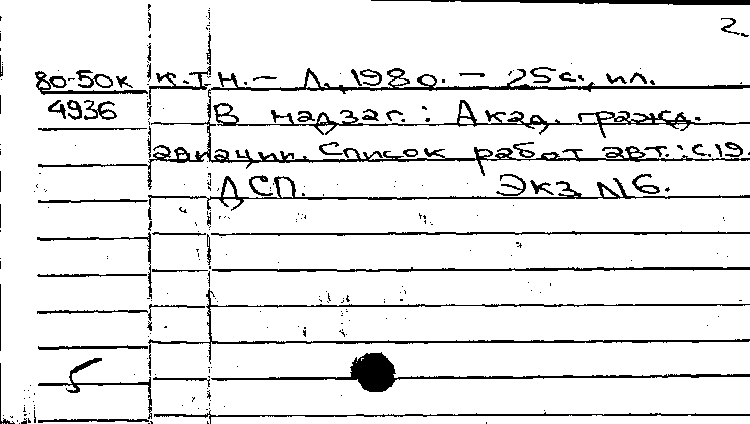 2
80-50к к.т.н. - Л., 1980. - 25с., ил.
4936 В надзаг.: Акад. гражд.
авиации. Список работ авт.: с.19.
ДСП. Экз N6.
5